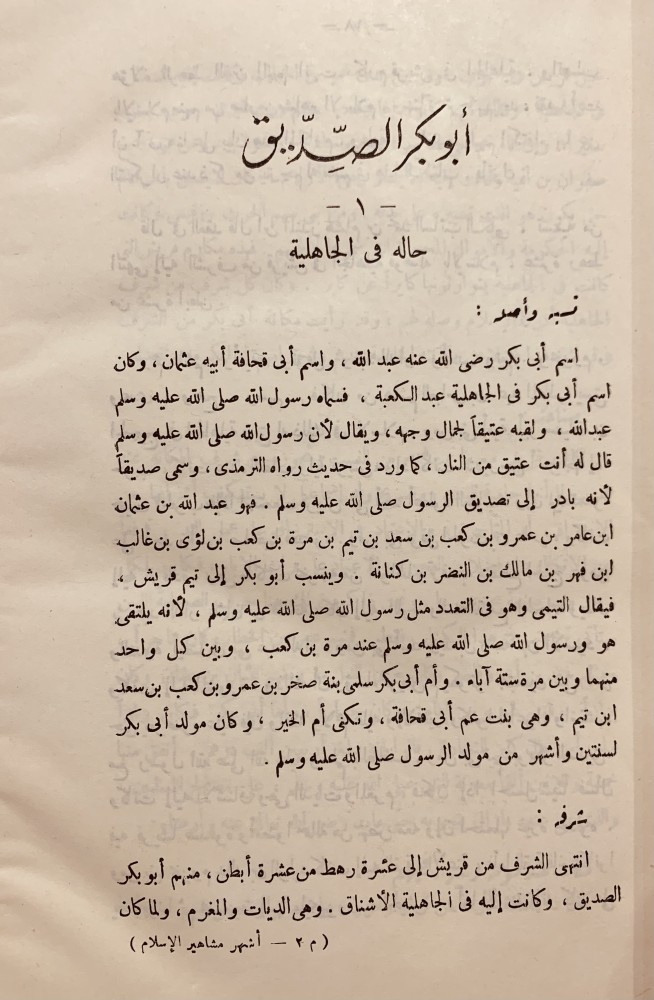 أبو بكر الصِّدِّيق
– ١ –
حاله فى الجاهلية
نسبه وأصله :
اسم أبى بكر رضى الله عنه عبد الله ، واسم أبى قحافة أبيه عثمان ، وكان
اسم أبى بكر فى الجاهلية عبد الكعبة ، فسماه رسول الله صلى الله عليه وسلم
عبدالله ، ولقبه عتيقاً لجمال وجهه ، ويقال لأن رسول الله صلى الله عليه وسلم
قال له أنت عتيق من النار ، كما ورد فى حديث رواه الترمذى ، وسمى صديقاً
لأنه بادر إلى تصديق الرسول صلى الله عليه وسلم . فهو عبد الله بن عثمان
ابن عامر بن عمرو بن كعب بن سعد بن تيم بن مرة بن كعب بن لؤى بن غالب
ابن فهر بن مالك بن النضر بن كنانة . وينسب أبو بكر إلى تيم قريش ،
فيقال التيمى وهو فى التعدد مثل رسول الله صلى الله عليه وسلم ، لأنه يلتقى
هو ورسول الله صلى الله عليه وسلم عند مرة بن كعب ، وبين كل واحد
منهما وبين مرة ستة آباء . وأم أبى بكر سلمى بنة صخر بن عمرو بن كعب بن سعد
ابن تيم ، وهى بنت عم أبى قحافة ، وتكنى أم الخير ، وكان مولد أبى بكر
لسنتين وأشهر من مولد الرسول صلى الله عليه وسلم .
شرفه :
انتهى الشرف من قريش إلى عشرة رهط من عشرة أبطن ، منهم أبو بكر
الصديق ، وكانت إليه فى الجاهلية الأشناق . وهى الديات والمغرم ، ولما كان
( م ٢ — أشهر مشاهير الإسلام )